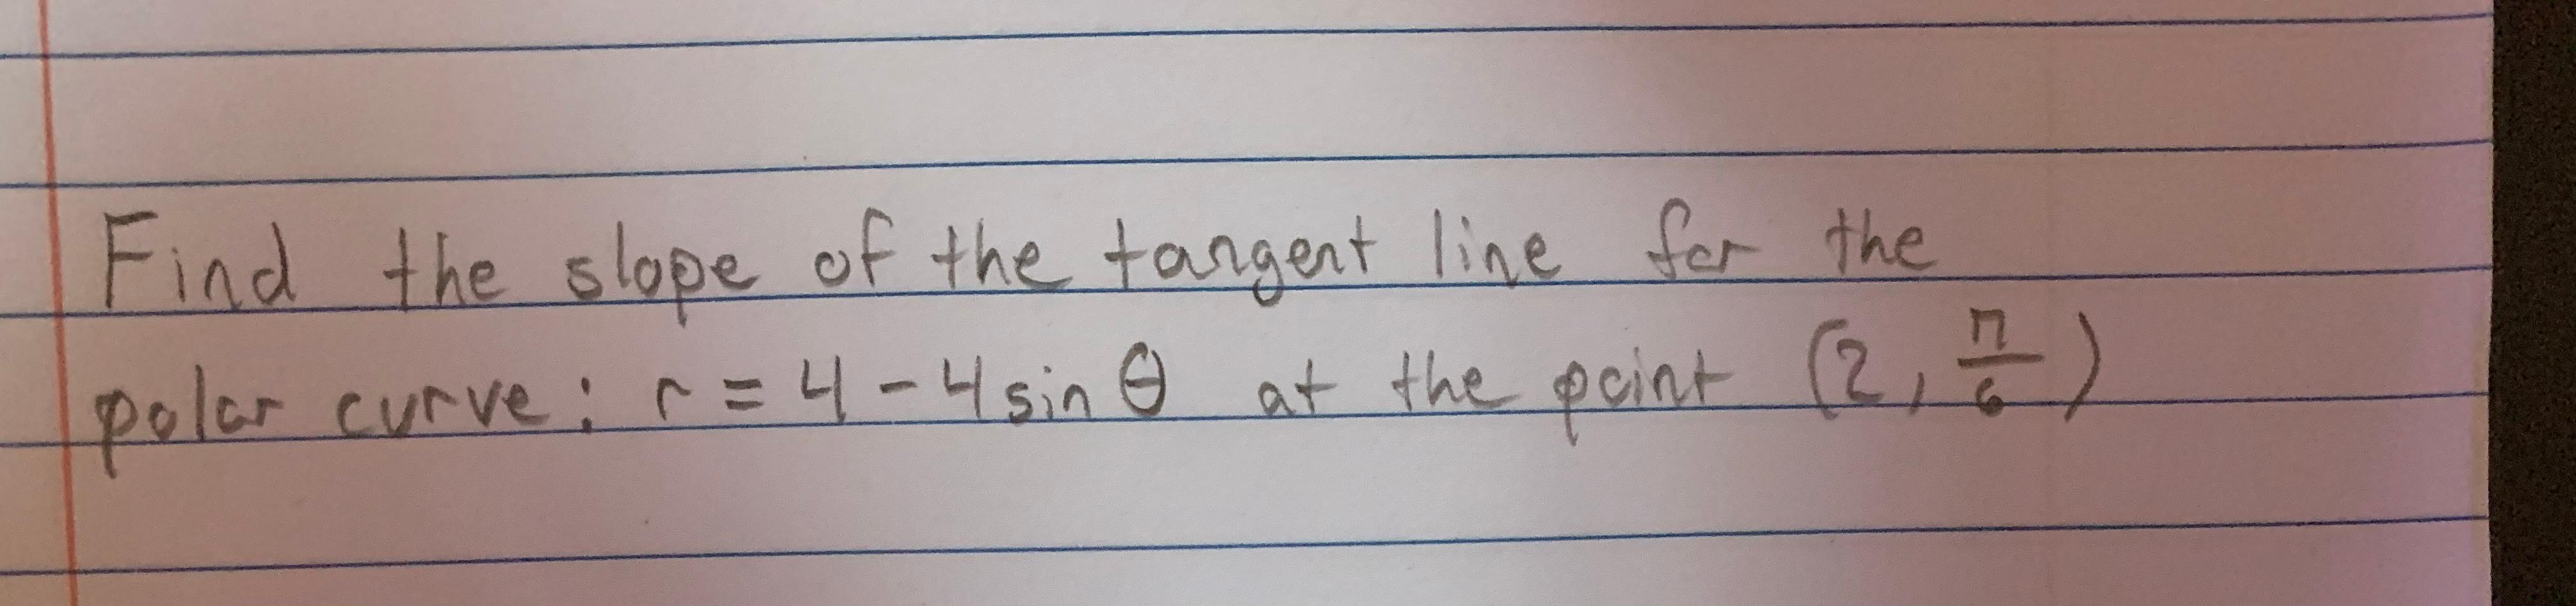 Find the slope of the tangent line for the
polar curve: r = 4 - 4 sin θ at the point (2, π/6)